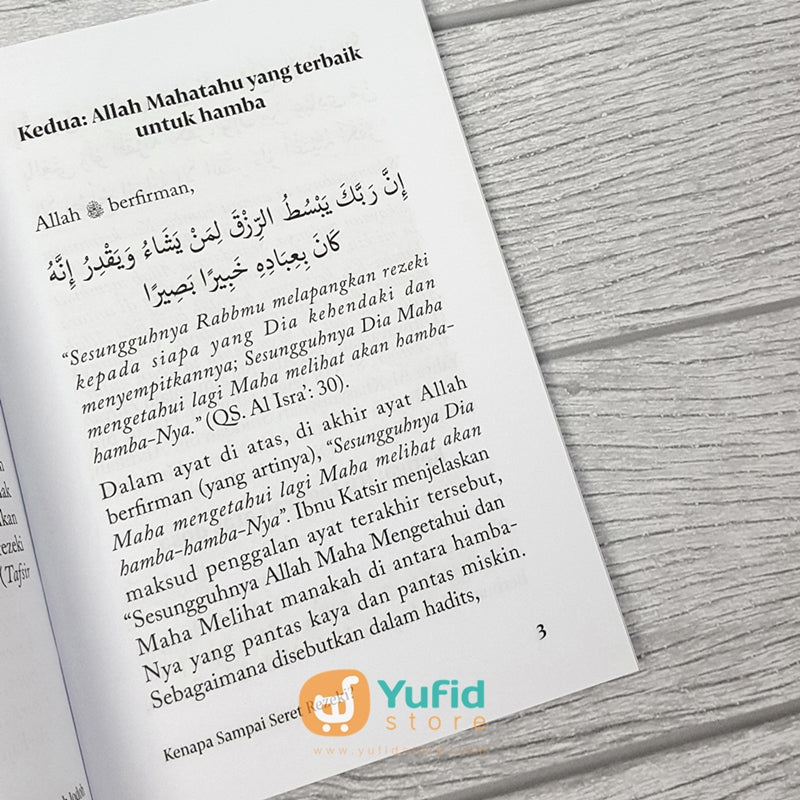 Kedua: Allah Mahatahu yang terbaik
untuk hamba
Allah ﷻ berfirman,
إِنَّ رَبَّكَ يَبْسُطُ الرِّزْقَ لِمَنْ يَشَاءُ وَيَقْدِرُ إِنَّهُ
كَانَ بِعِبَادِهِ خَبِيرًا بَصِيرًا
“Sesungguhnya Rabbmu melapangkan rezeki
kepada siapa yang Dia kehendaki dan
menyempitkannya; Sesungguhnya Dia Maha
mengetahui lagi Maha melihat akan hamba-
hamba-Nya.” (QS. Al Isra’: 30).
Dalam ayat di atas, di akhir ayat Allah
berfirman (yang artinya), “Sesungguhnya Dia
Maha mengetahui lagi Maha melihat akan
hamba-hamba-Nya”. Ibnu Katsir menjelaskan
maksud penggalan ayat terakhir tersebut,
“Sesungguhnya Allah Maha Mengetahui dan
Maha Melihat manakah di antara hamba-
Nya yang pantas kaya dan pantas miskin.
Sebagaimana disebutkan dalam hadits,
3
Kenapa Sampai Seret Rezeki?
rezeki
(Tafsir
Yufid
store